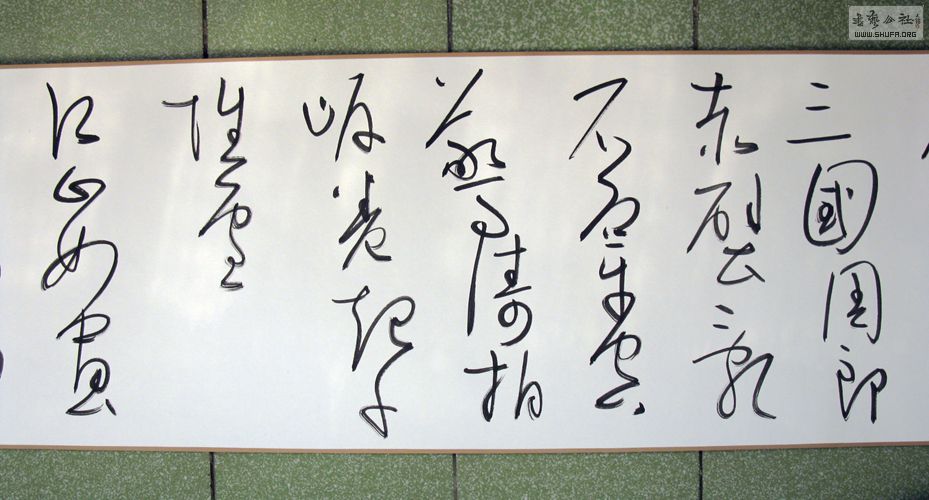 三國周郎
赤壁亂
石崩雲
驚濤拍
岸卷起千
堆雪
江山如畫
書藝公社
WWW.SHUFA.ORG